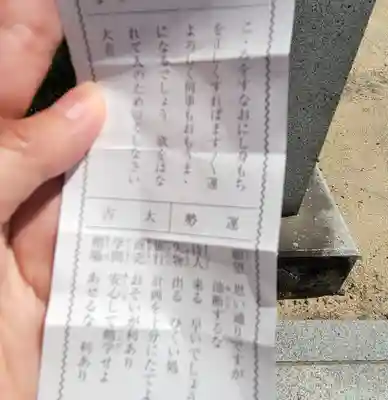 こゝろをすなおにし身もち
を正しくすればますく運
よろしく何事もおもうまゝ
になるでしょう 欲をはな
れて人のためにつくしなさい
大吉
運勢 大吉
願望 思い通りですが
油断するな
待人 来る 早いでしょう
失物 出る ひくい処
旅行 計画を十分にたてよ
商売 おそいが利あり
学問 安心して勉学せよ
相場 あせるな 利あり